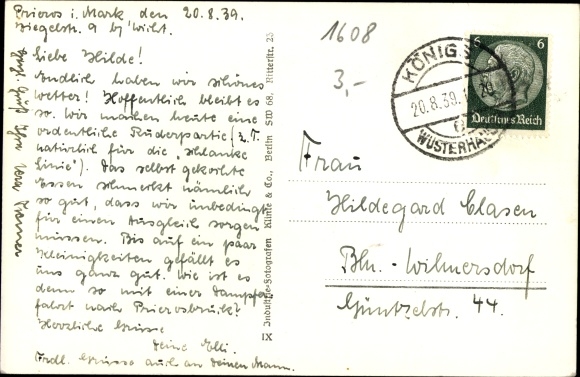 Prieros i. Mark den 20.8.39.
Ziegelstr. 9 b/ Wicht.
Liebe Hilde!
Endlich haben wir schönes
Wetter! Hoffentlich bleibt es
so. Wir machen heute eine
ordentliche Ruderpartie (z.T.
natürlich für die „schlanke
Linie"). Das selbst gekochte
Essen schmeckt nämlich
so gut, dass wir unbedingt
für einen Ausgleich sorgen
müssen. Bis auf ein paar
Kleinigkeiten gefällt es
uns ganz gut. Wie ist es
denn so mit einer Dampfer
fahrt nach Prierosbrück?
Herzliche Grüsse
Deine Elli.
Frdl. Grüsse auch an Deinen Mann.
Gruß Ihre Vera
IX Industrie-Fotografen Klinke & Co., Berlin SW 68, Ritterstr. 23
1608
3,-
KÖNIGS
20.8.39.
WUSTERHAUSEN
6 6
Deutsches Reich
Frau
Hildegard Clasen
Bln.-Wilmersdorf
Güntzelstr. 44.